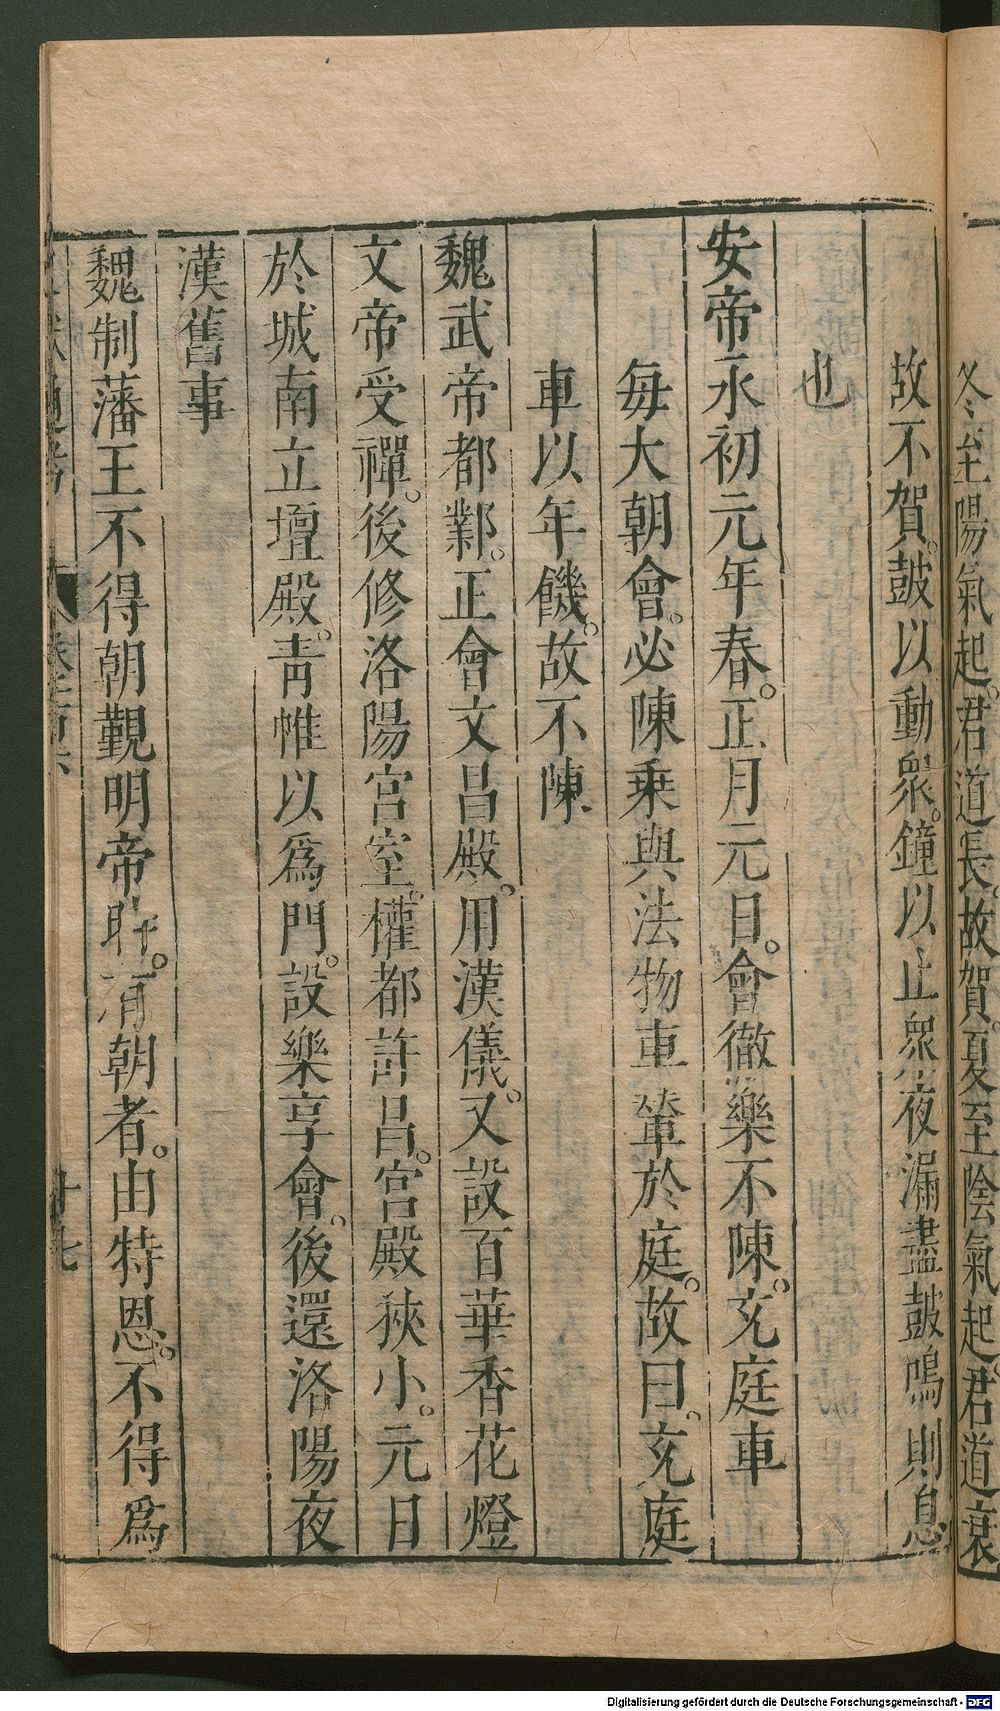 冬至陽氣起。君道長。故賀。夏至陰氣起。君道衰
故不賀。鼓以動衆。鐘以止衆。夜漏盡鼓鳴則息
也
安帝永初元年春。正月元日。會徹樂不陳。充庭車
每大朝會。必陳乗輿法物車輦於庭。故曰。充庭
車以年饑。故不陳
魏武帝都鄴。正會文昌殿。用漢儀。又設百華香花燈
文帝受禪。後修洛陽宮室。權都許昌。宮殿狹小。元日
於城南立壇殿。靑帷以爲門。設樂享會。後還洛陽夜
漢舊事
魏制藩王不得朝覲明帝時。有朝者。由特恩。不得爲
通考 卷一百六 十七
Digitalisierung gefördert durch die Deutsche Forschungsgemeinschaft - DFG